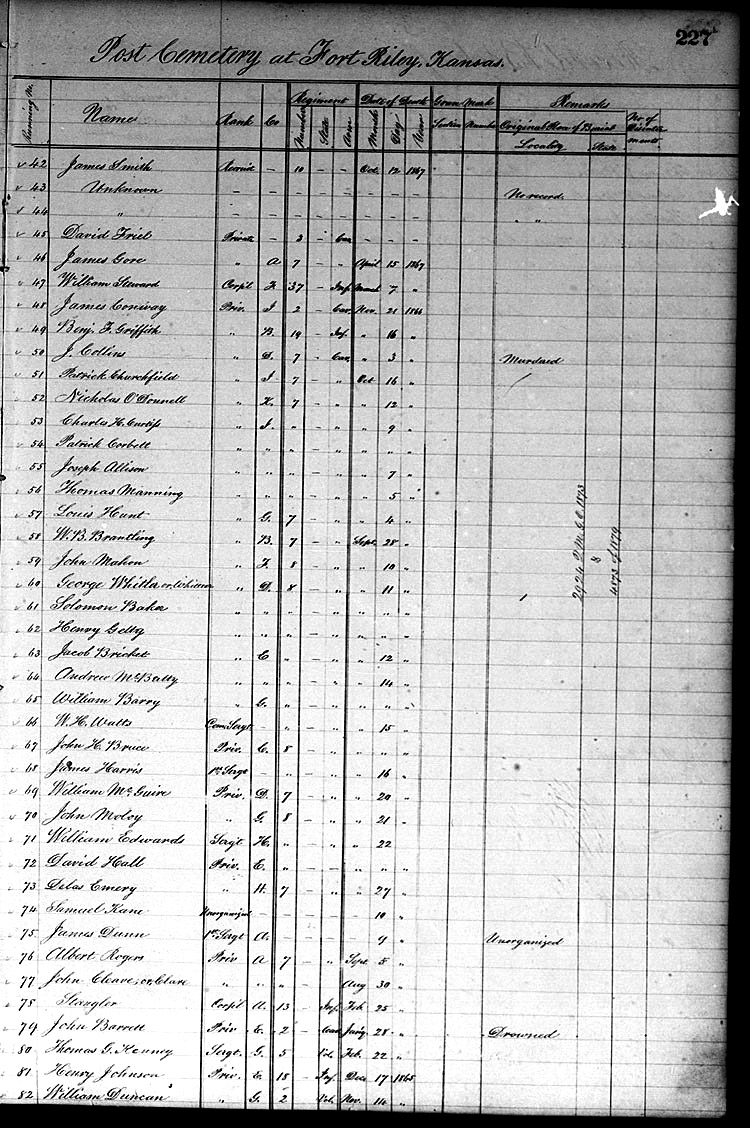 227
Post Cemetery at Fort Riley, Kansas.
Running No. Name Rank Co Regiment Date of Death Grave Mark Remarks No. of
Number State Arm Month Day Year Section Number Original Place of Burial
Locality State
42 James Smith Recruit - 10 - Oct. 12 1867
43 Unknown - - - - - - - - No record.
44 " - - - - - - - - " "
45 David Friel Private - 3 - Cav - - -
46 James Gore " A 7 - " April 15 1867
47 William Steward Corp'l F. 37 - Inf. March 7 "
48 James Conway Priv. I 2 - Cav. Nov. 21 1866
49 Benj. F. Griffith " B. 19 - Inf. " 16 "
50 J. Collins " 7 - Cav. " 3 " Murdered
51 Patrick Churchfield " I 7 - " Oct 16 "
52 Nicholas O'Donnell " 7 - " " 12 "
53 Charles H. Curtiss " I. " - " " 9 "
54 Patrick Corbett " " " - " " " "
55 Joseph Allison " " " - " " 7 "
56 Thomas Manning " " " - " " 5 "
57 Louis Hunt " G. 7 - " " 4 "
58 W. B. Brantling " B. 7 - " Sept. 28 "
59 John Mahon " F. 8 - " " 10 "
60 George Whitler or, " D. 8 - " " 11 "
61 Solomon Baker " " " - " " " "
62 Henry Getty " " " - " " " "
63 Jacob Bricket " C " - " " 12 "
64 Andrew " " " - " " 14 "
65 William Barry " G. " - " " " "
66 W. H. Watts Com. Sergt " - " " 15 "
67 John H. Bruce Priv. C. 8 - " " " "
68 James Harris 1st Sergt - " - " " 16 "
69 William McGuire Priv. D. 7 - " " 20 "
70 John Moloy " G. 8 - " " 21 "
71 William Edwards Sergt H. " - " " 22
72 David Hall Priv. E. " - " " " "
73 Delos Emery " H. 7 - " " 27 "
74 Samuel Kane Unorganized - - - - - 10 "
75 James Dunn 1st Sergt A. 9 " Unorganized
76 Albert Rogers Priv A 7 - " Sept. 5 "
77 John Cleave, or, Clare " " " - " Aug 30 "
78 Stangler Corp'l A. 13 - Inf. Feb. 25 "
79 John Barrett Priv E. 2 - Cav. Jan'y. 28 " Drowned
80 Thomas G. Henney Sergt. G. 5 Vol. Feb. 22 "
81 Henry Johnson Priv. E. 18 - Inf. Dec 17 1865
82 William Duncan " G. 2 Vol. Nov. 14 "
2924 1873
8
4873 of 1879